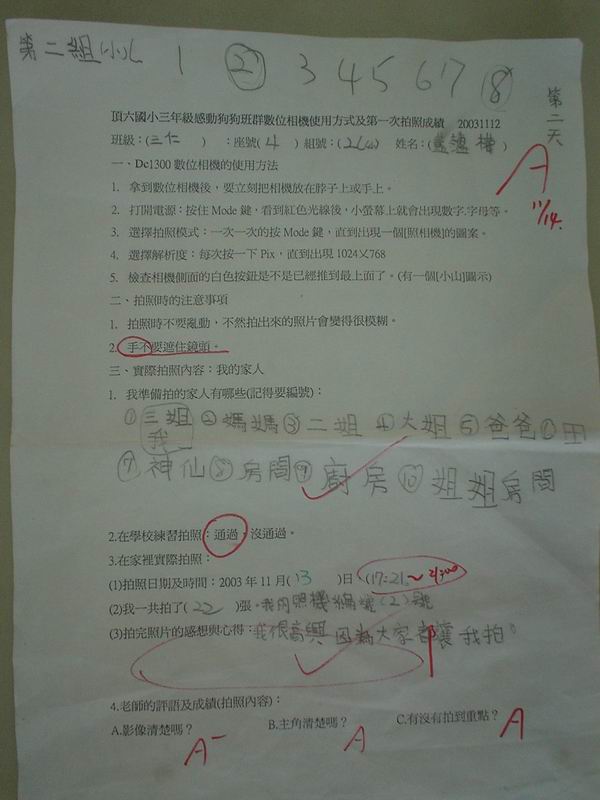 第二組小乙 1 2 3 4 5 6 7 8
第二天
頂六國小三年級感動狗狗班群數位相機使用方式及第一次拍照成績 20031112
班級:(三仁 ) :座號( 4 ) 組號:( 2乙 ) 姓名:( )
A
11/14.
一、Dc1300 數位相機的使用方法
1. 拿到數位相機後,要立刻把相機放在脖子上或手上。
2. 打開電源:按住 Mode 鍵,看到紅色光線後,小螢幕上就會出現數字.字母等。
3. 選擇拍照模式:一次一次的按 Mode 鍵,直到出現一個[照相機]的圖案。
4. 選擇解析度:每次按一下 Pix,直到出現 1024╳768
5. 檢查相機側面的白色按鈕是不是已經推到最上面了。(有一個[小山]圖示)
二、拍照時的注意事項
1. 拍照時不要亂動,不然拍出來的照片會變得很模糊。
2. 手不要遮住鏡頭。
三、實際拍照內容:我的家人
1. 我準備拍的家人有哪些(記得要編號):
①三姐②媽媽③二姐④大姐⑤爸爸⑥田
我
⑦神仙⑧房間⑨廚房⑩姐姐房間
2.在學校練習拍照:通過,沒通過。
3.在家裡實際拍照:
(1)拍照日期及時間:2003 年 11 月( 13 )日、(17:21.~21:00
(2)我一共拍了( 22 )張.我的照機編號(2)號
(3)拍完照片的感想與心得:我很高興因為大家都讓我拍。
4.老師的評語及成績(拍照內容):
A.影像清楚嗎? B.主角清楚嗎? C.有沒有拍到重點?
A- A A